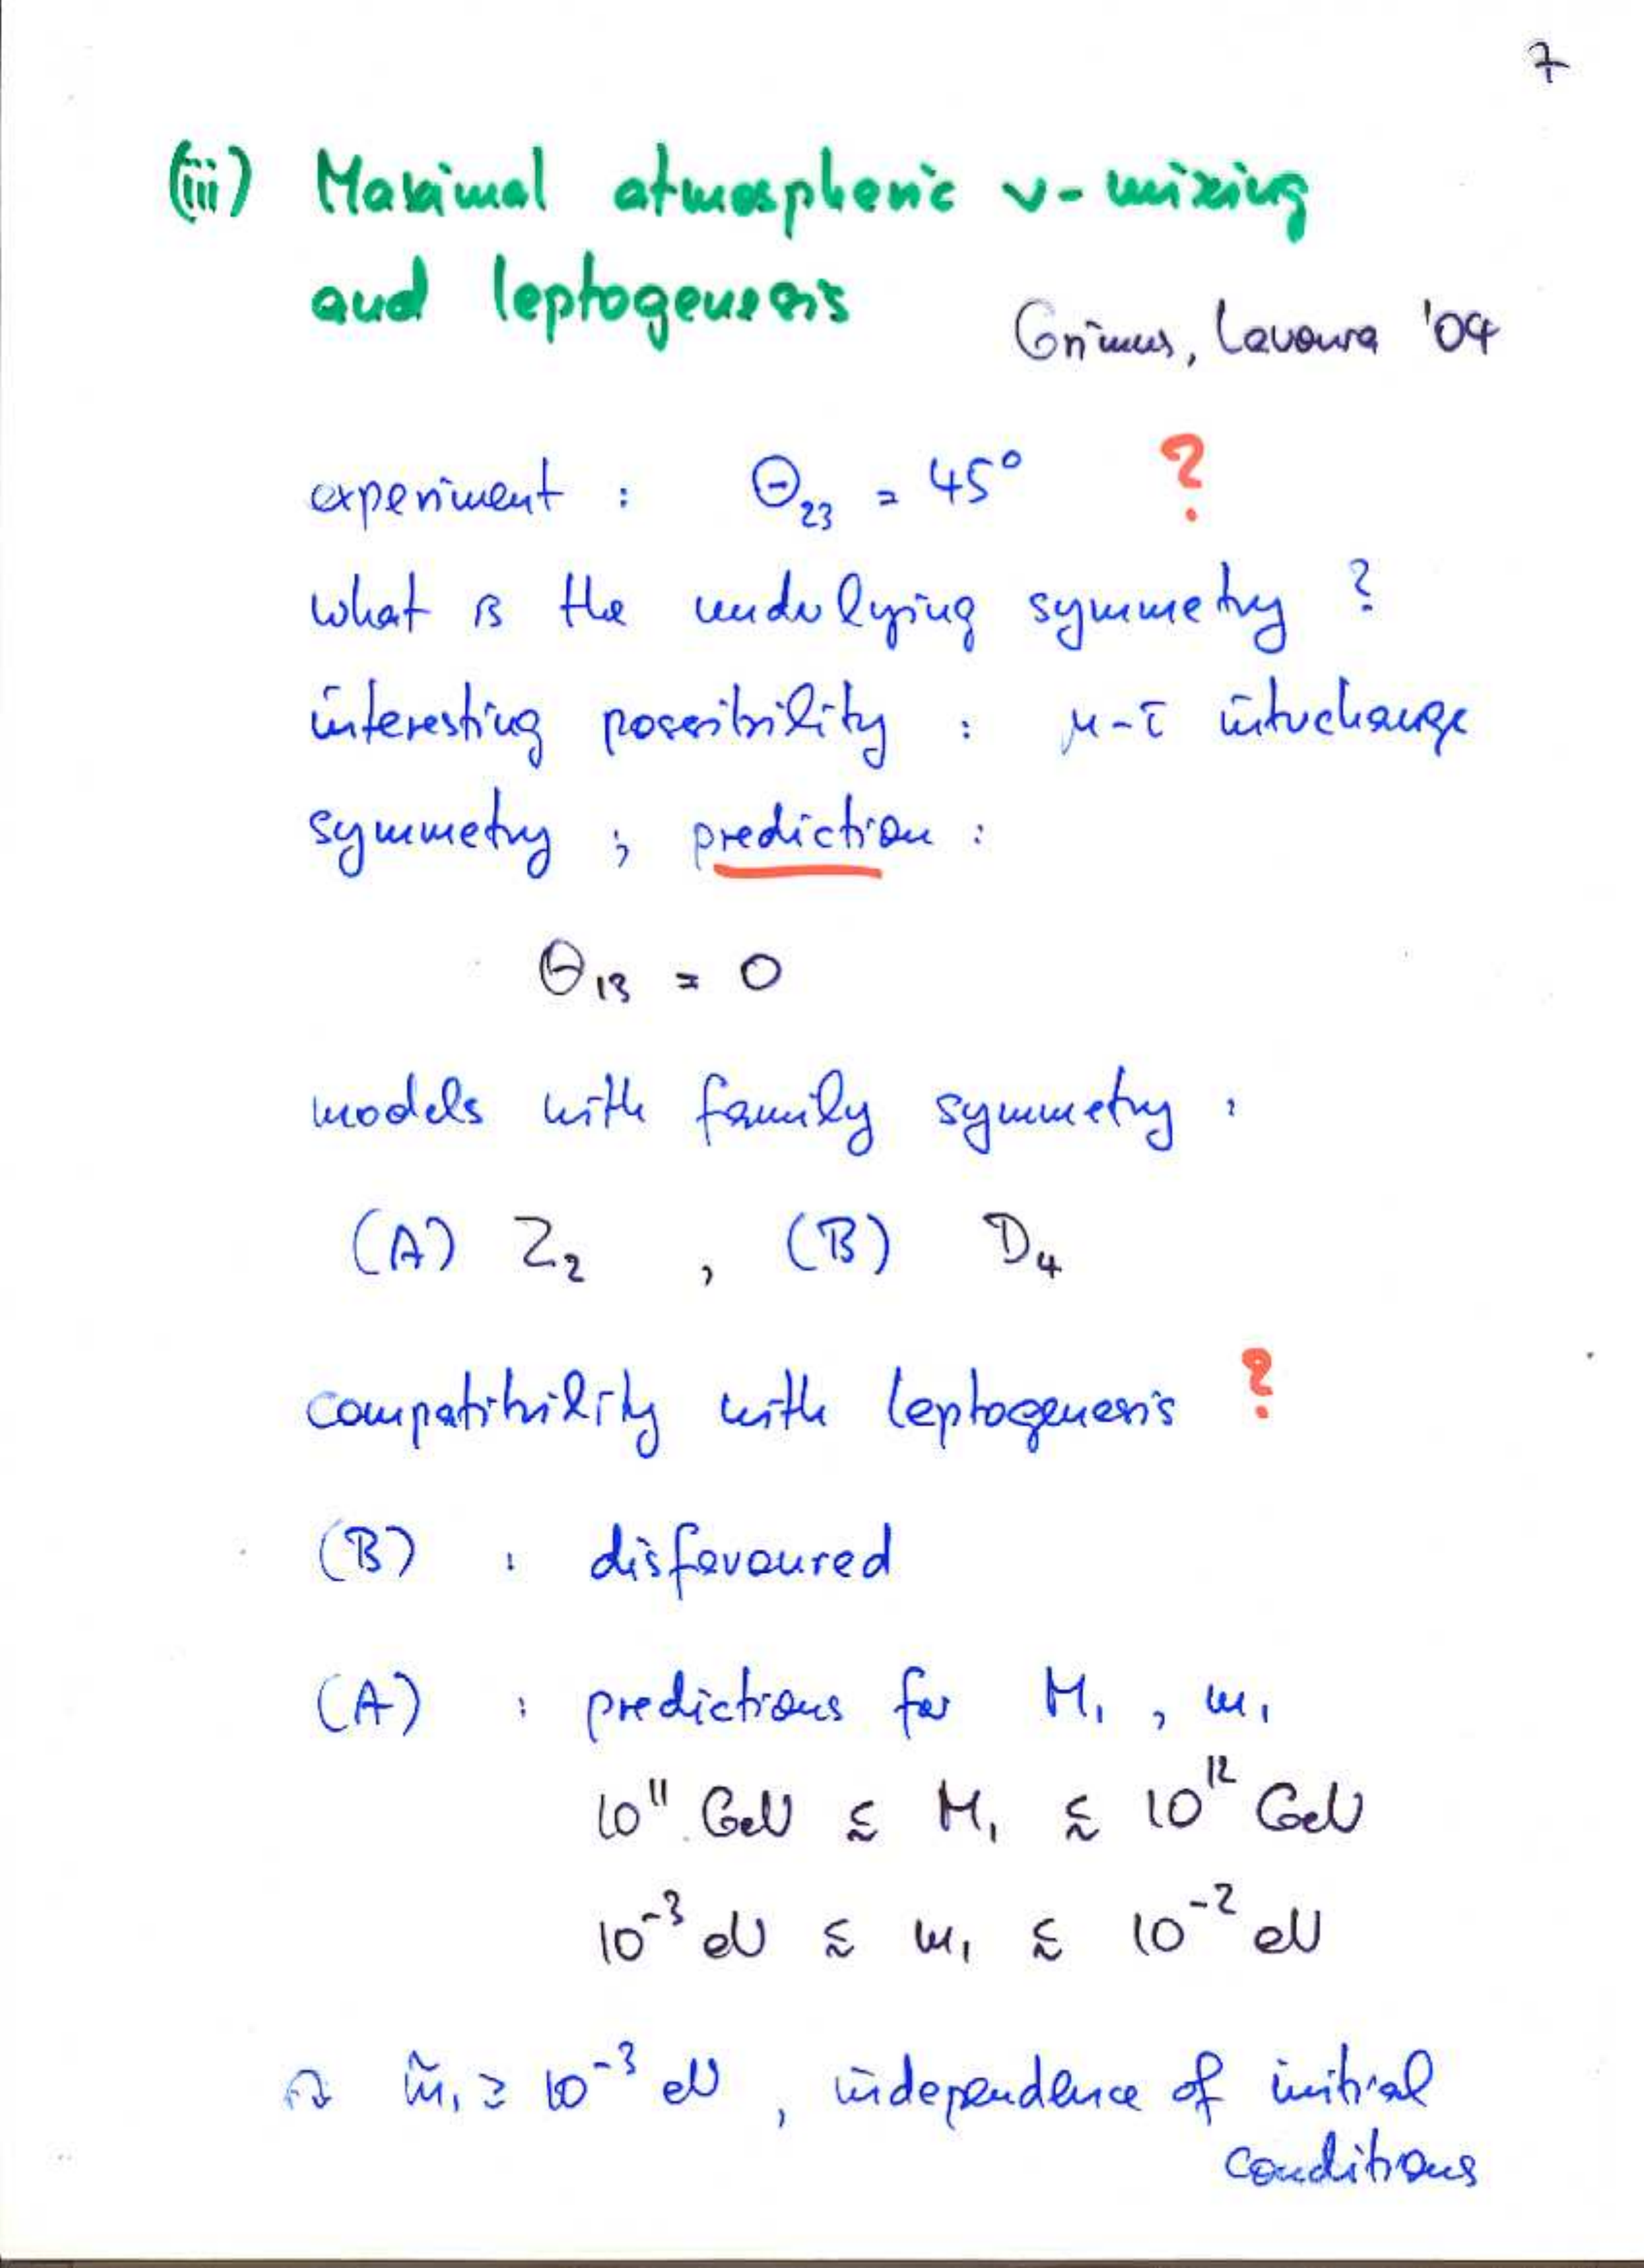 7
(iii) Maximal atmospheric ν-mixing
and leptogenesis
Grimus, Lavoura '04
experiment : Θ₂₃ = 45° ?
what is the underlying symmetry ?
interesting possibility : μ-τ interchange
symmetry ; prediction :
Θ₁₃ = 0
models with family symmetry :
(A) Z₂ , (B) D₄
compatibility with leptogenesis ?
(B) : disfavoured
(A) : predictions for M₁ , m₁
10¹¹ GeV ≲ M₁ ≲ 10¹² GeV
10⁻³ eV ≲ m₁ ≲ 10⁻² eV
m̃₁ ≥ 10⁻³ eV , independence of initial
conditions